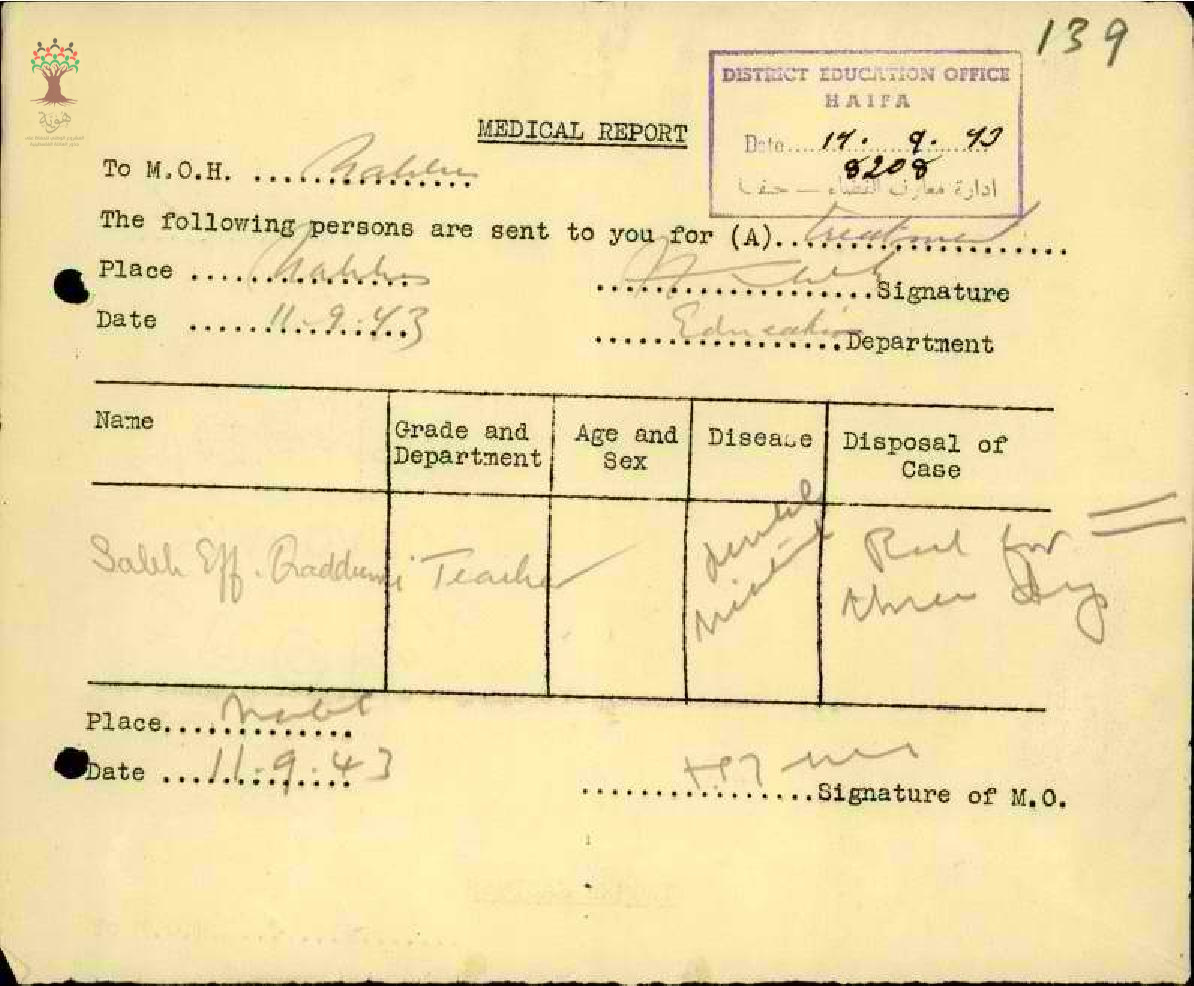 139
DISTRICT EDUCATION OFFICE
HAIFA
Date.... 14. 9. 43
8208
ادارة معارف القضاء — حيفا
هوية
MEDICAL REPORT
To M.O.H. ... Nablus
The following persons are sent to you for (A)..treatment
Place ... Nablus
Signature
Date ... 11.9.43
Education Department
Name
Grade and Department
Age and Sex
Disease
Disposal of Case
Saleh Eff. Qaddumi
Teacher
Dental
Rest for three days
Place....
Date ... 11.9.43
Signature of M.O.